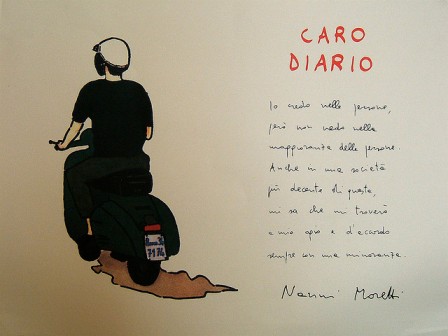 CARO
DIARIO
Io credo nelle persone,
però non credo nella
maggioranza delle persone.
Anche in una società
più decente di questa,
mi sa che mi troverò
a mio agio e d'accordo
sempre con una minoranza.
Nanni Moretti
Roma
71